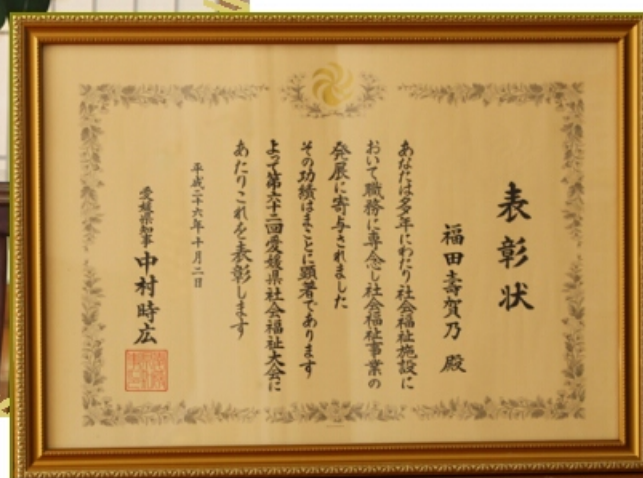 表彰状
福田壽賀乃 殿
あなたは多年にわたり社会福祉施設に
おいて職務に専念し社会福祉事業の
発展に寄与されました
その功績はまことに顕著であります
よって第六十二回愛媛県社会福祉大会に
あたりこれを表彰します
平成二十六年十月二日
愛媛県知事 中村時広